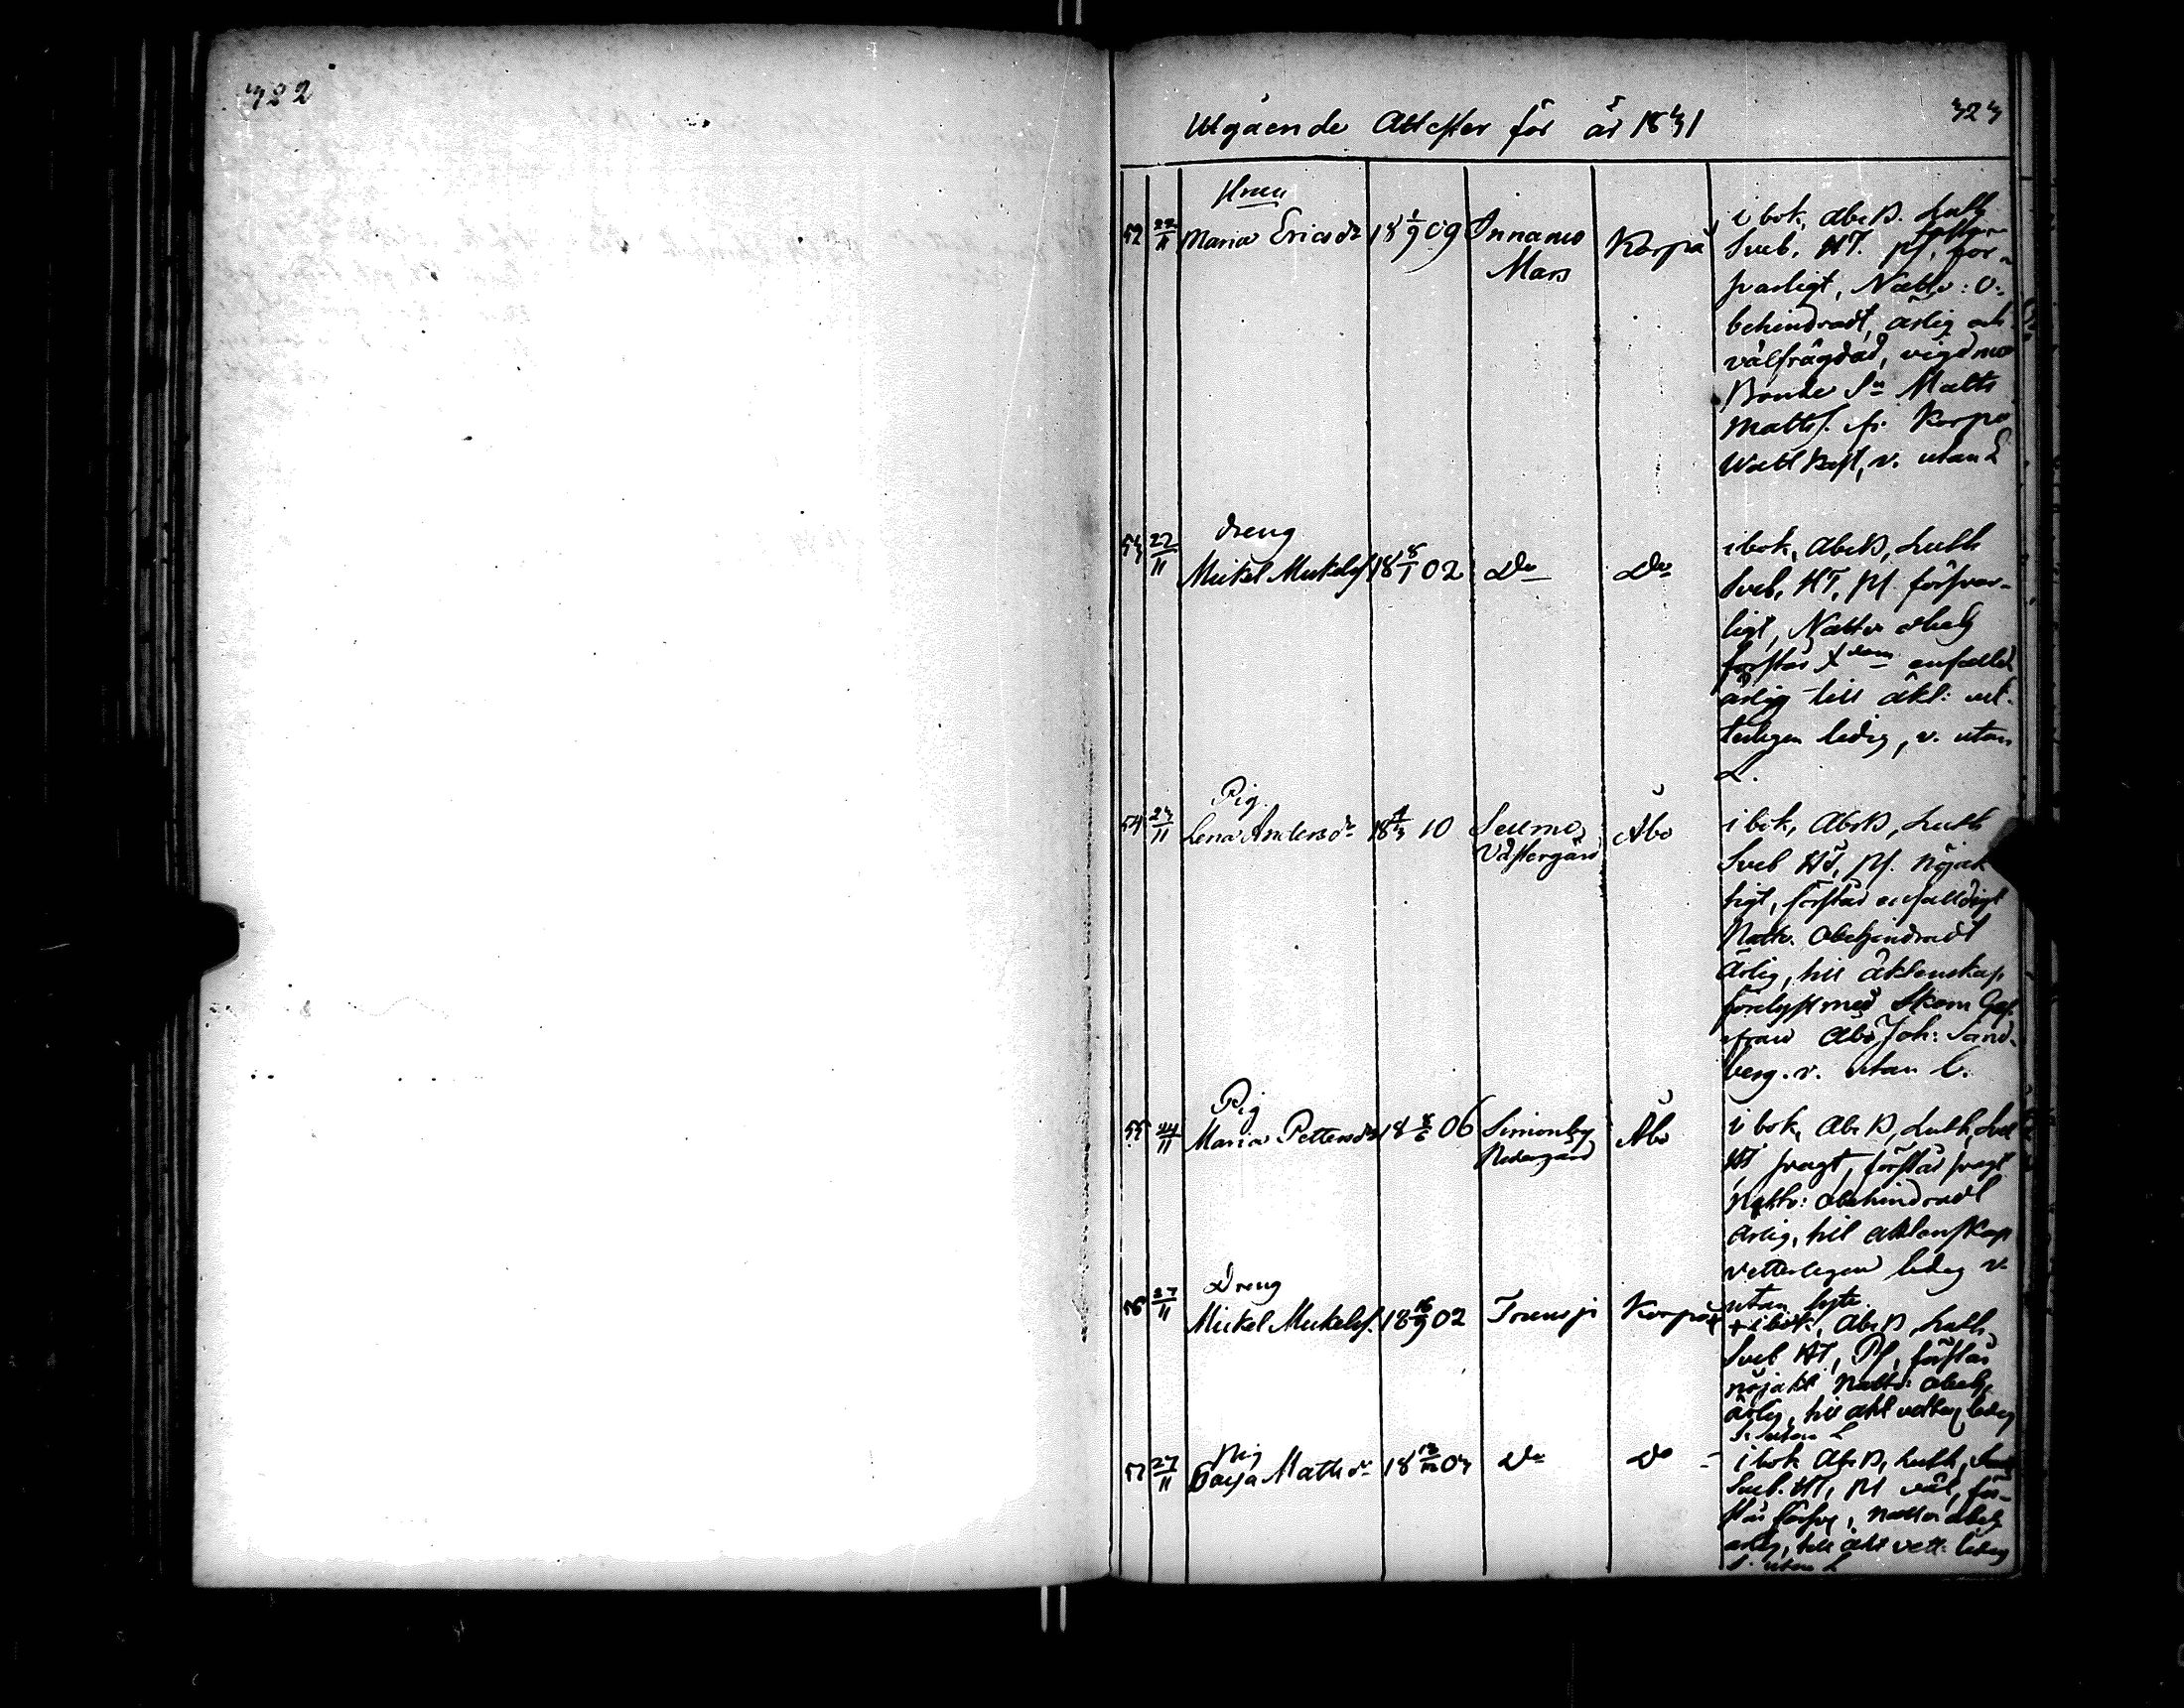 322
Utgående Attester för år 1831
323
Hustru
52 22/11 Maria Ericsdr 18 1/9 09 Innamo Mars Korpo
i bok, Abc B. Luth
förstår
Sveb. HT. Ps, för-
svarligt, Nattv: o-
behindradt, ärlig och
välfrägdad, vigd med
Bonde Sn Matts
Matts. fr. Korpo
v. utan L
dreng
53 22/11 Mickel Mickels. 18 8/1 02 Do Do
i bok, Abc B, Luth
Sveb, HT, Ps. försvar-
ligt, Nattv obeh
förstår dem enfalld
ärlig till äkt: vet-
terligen ledig, v. utan
L.
Pig.
54 23/11 Lena Andersdr 18 4/3 10 Sellmo Västergård Åbo
i bok, Abc B, Luth
Sveb HT, Ps. nöjak
tigt, förstår enfalldigt
Nattv. obehindradt
ärlig, till äktenskap
förelyst med Skom Ges.
ifrån Åbo Joh: Sand-
berg. v. utan L.
Pig
55 24/11 Maria Pettersdr 18 8/6 06 Simonby Nedergård Åbo
i bok, Abc B, Luth, Sveb
HT svagt, förstår svagt
Nattv: obehindradt
ärlig, till äktenskap
vetterligen ledig v.
utan lyte.
Dreng
56 27/11 Mickel Mickels. 18 16/9 02 Trunsjö Korpo
+ i bok, Abc B, Luth,
Sveb HT, Ps, förstår
nöjakt Nattv: obeh,
ärlig, till äkt vetterl ledig
v. utan L
Pig
57 27/11 Caisa Mattsdr 18 13/12 03 Do Do
i bok Abc B, Luth,
Sveb. HT, Ps väl, för-
står försv, Nattv obeh
ärlig, till äkt vett: ledig
v. utan L